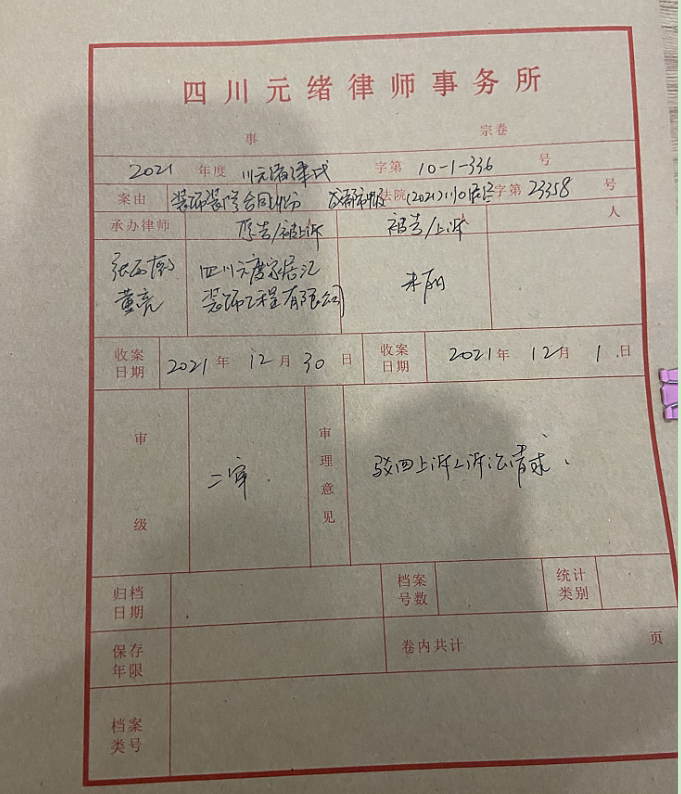 四川元绪律师事务所
事 宗卷
2021 年度 川元绪律民 字第 10-1-336 号
案由 装饰装修合同纠纷 成都市中级 法院 (2021)川01民终 字第 23358 号
承办律师 原告/被上诉 被告/上诉 人
黄亮 四川 度家居汇装饰工程有限公司 朱
收案日期 2021 年 12 月 30 日 收案日期 2021 年 12 月 1 日
审级 二审 审理意见 驳回上诉人诉讼请求、
归档日期 档案号数 统计类别
保存年限 卷内共计 页
档案类号